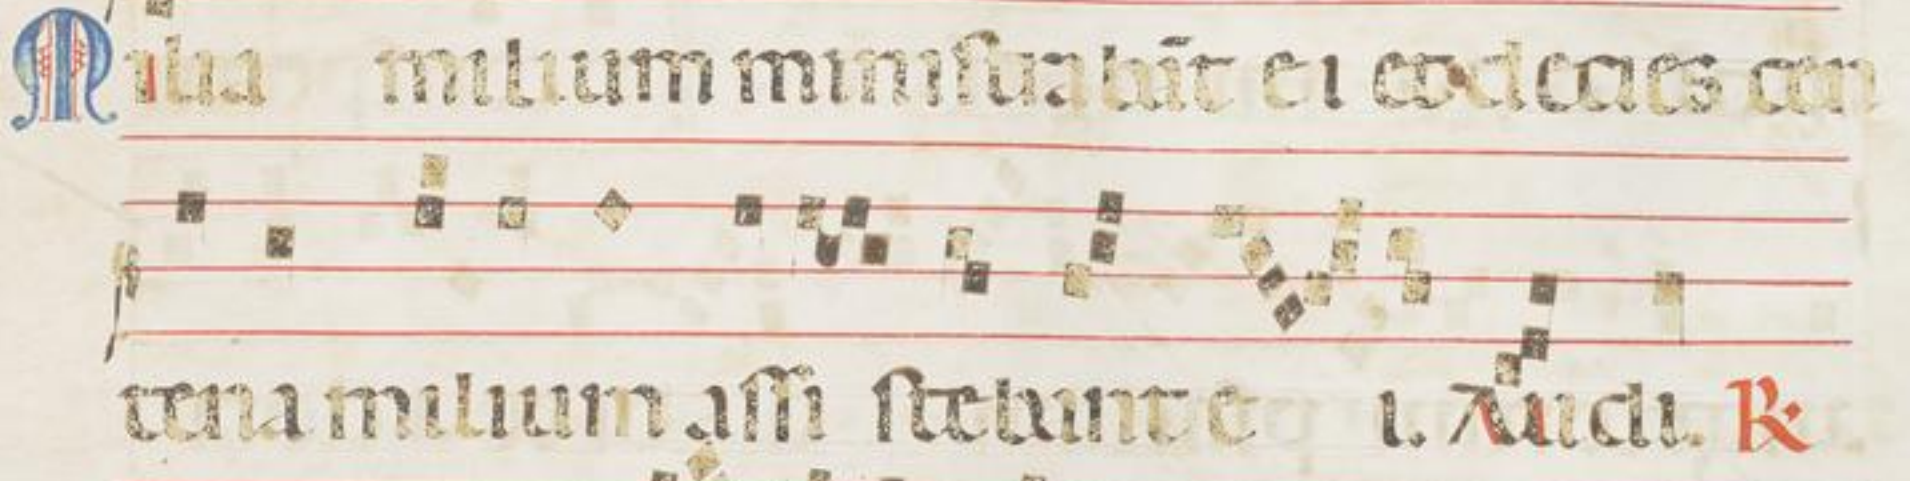 Milia milium ministrabāt ei et decies cen
tena milium assistebant ei. Audi. ℟